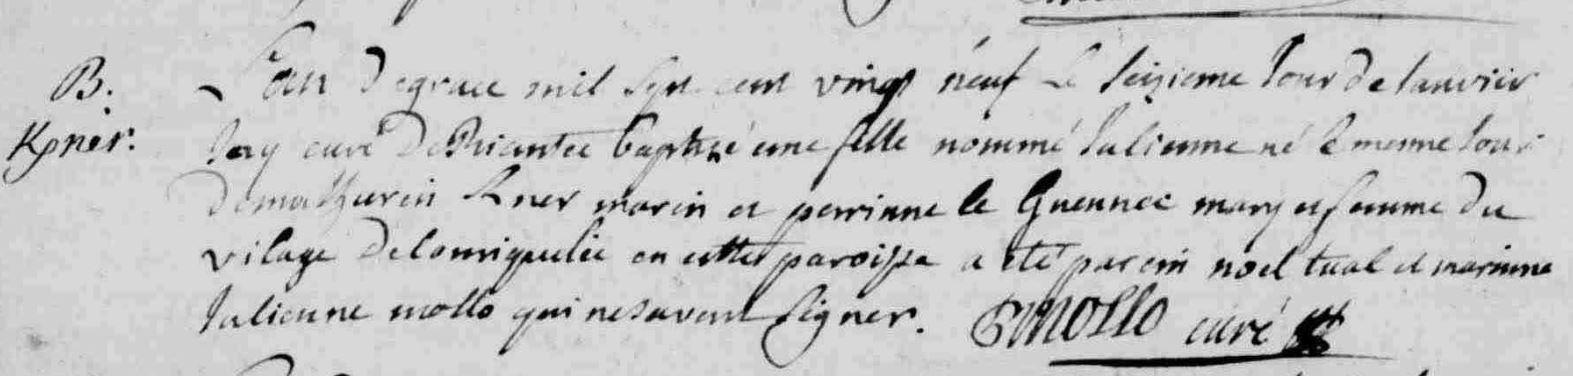 B. L'an de grace mil sept cent vingt neuf le seizieme Jour de Janvier
Kpner. Jay curé de Riantec baptisé une fille nommé Julienne né le mesme Jour
de mathurin Kner marin et perrinne le Guennec mary et femme du
vilage de en cette paroisse a eté parein noel tual et marinne
Julienne mollo qui ne savent signer. G mollo curé